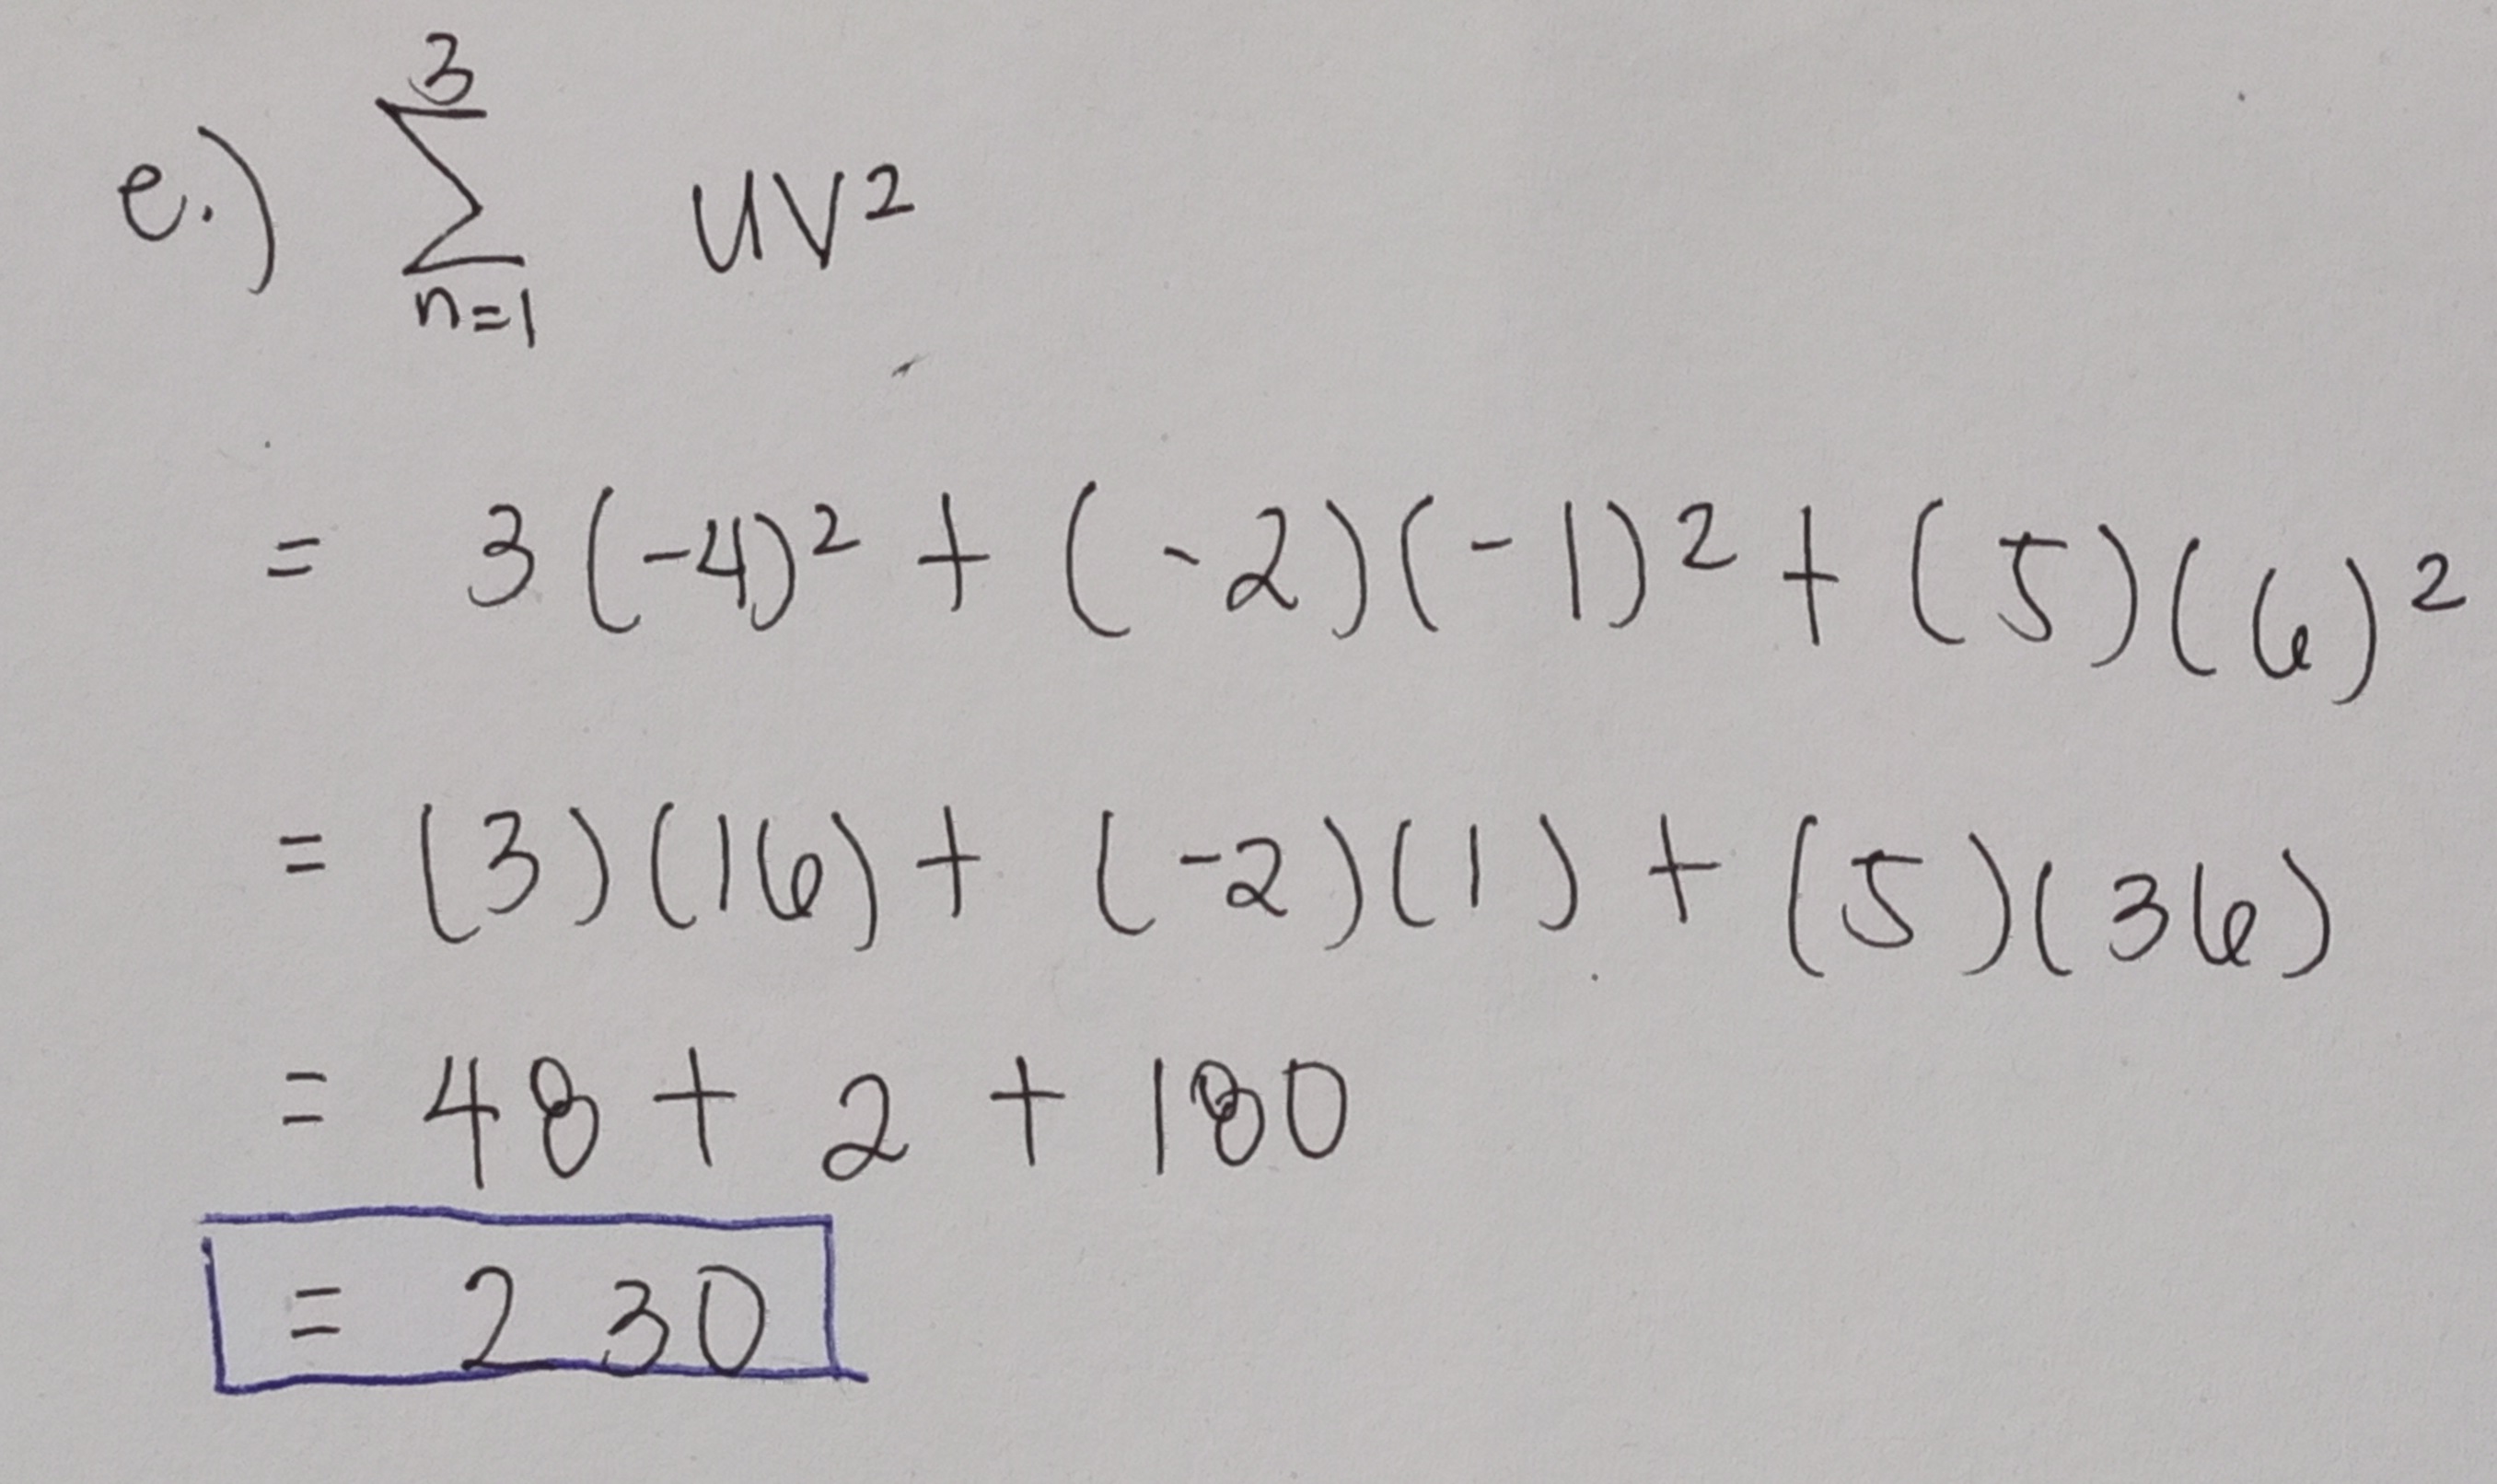 e.) 3
∑ UV²
n=1
= 3(-4)² + (-2)(-1)² + (5)(6)²
= (3)(16) + (-2)(1) + (5)(36)
= 48 + 2 + 180
= 230